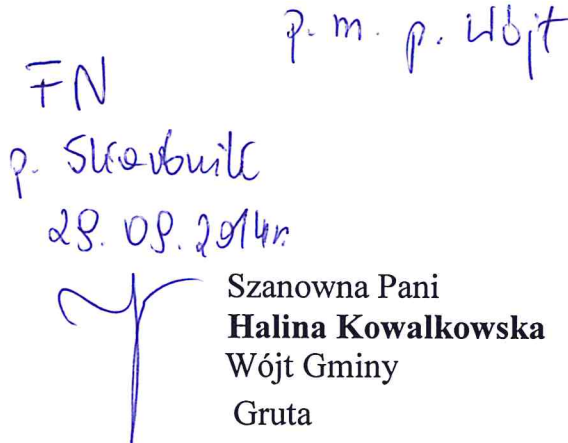 p. m. p. Wójt
FN
p. Skarbnik
29.09.2014r.
Szanowna Pani
Halina Kowalkowska
Wójt Gminy
Gruta